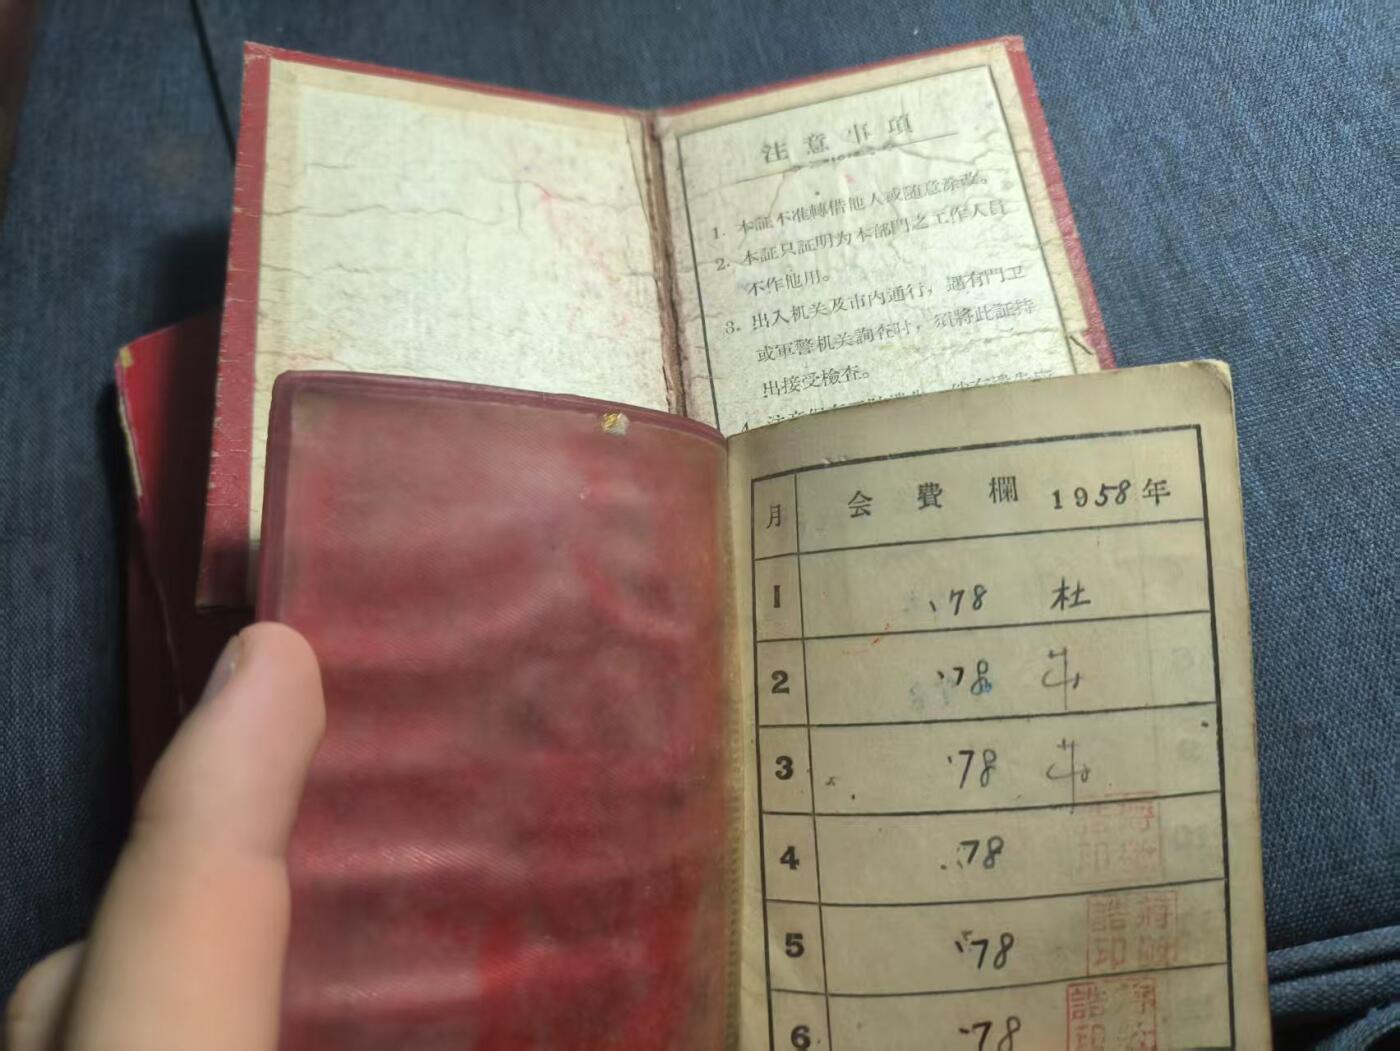 注意事項
1. 本証不准轉借他人或随意涂改。
2. 本証只証明为本部門之工作人員
不作他用。
3. 出入机关及市内通行，遇有門卫
或軍警机关詢查时，須將此証持
出接受檢查。
4.
月 会費欄 1958年
1 .78 杜
2 .78
3 .78
4 .78
5 .78
6 .78